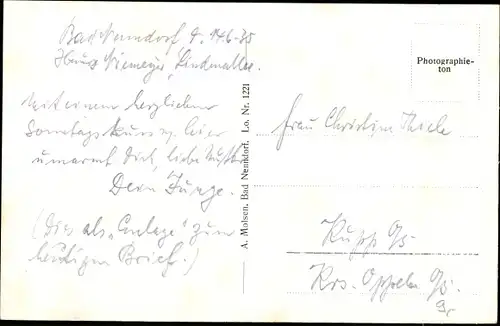 Bad Nenndorf, d. 14.6.35
Haus Niemeyer, Lindenallee.
Mit einem herzlichen
Sonntagskuss v. hier
umarmt Dich, liebe Mutter
Dein Junge.
(Dies als „Einlage" zum
heutigen Brief.)
A. Molsen, Bad Nenndorf. Lo. Nr. 1221
Photographie-
ton
Frau Christine Thiele
Krs. Oppeln